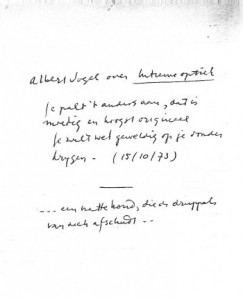 Albert Vogel over Intieme optiek
Je pakt 't anders aan, dat is
moedig en hoogst origineel
Je zult wel geweldig op je donder
krygen - (15/10/73)
... een natte hond, die de druppels
van zich afschudt - -